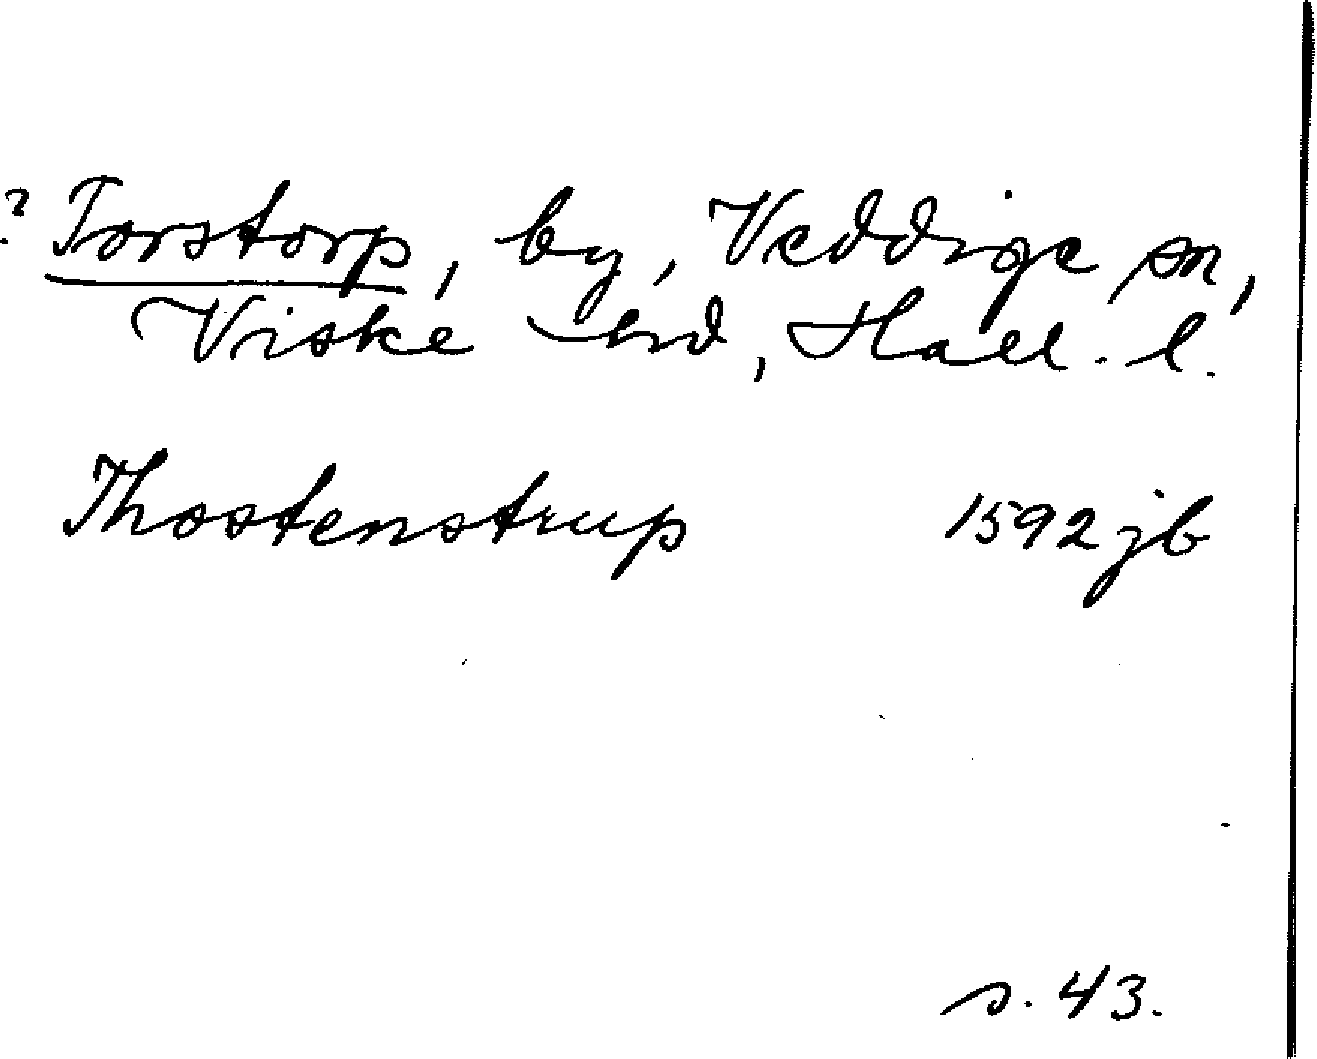 ? Torstorp, by, Veddige sn,
Viske hd, Hall. l.
Thostenstrup 1592 jb
s. 43.